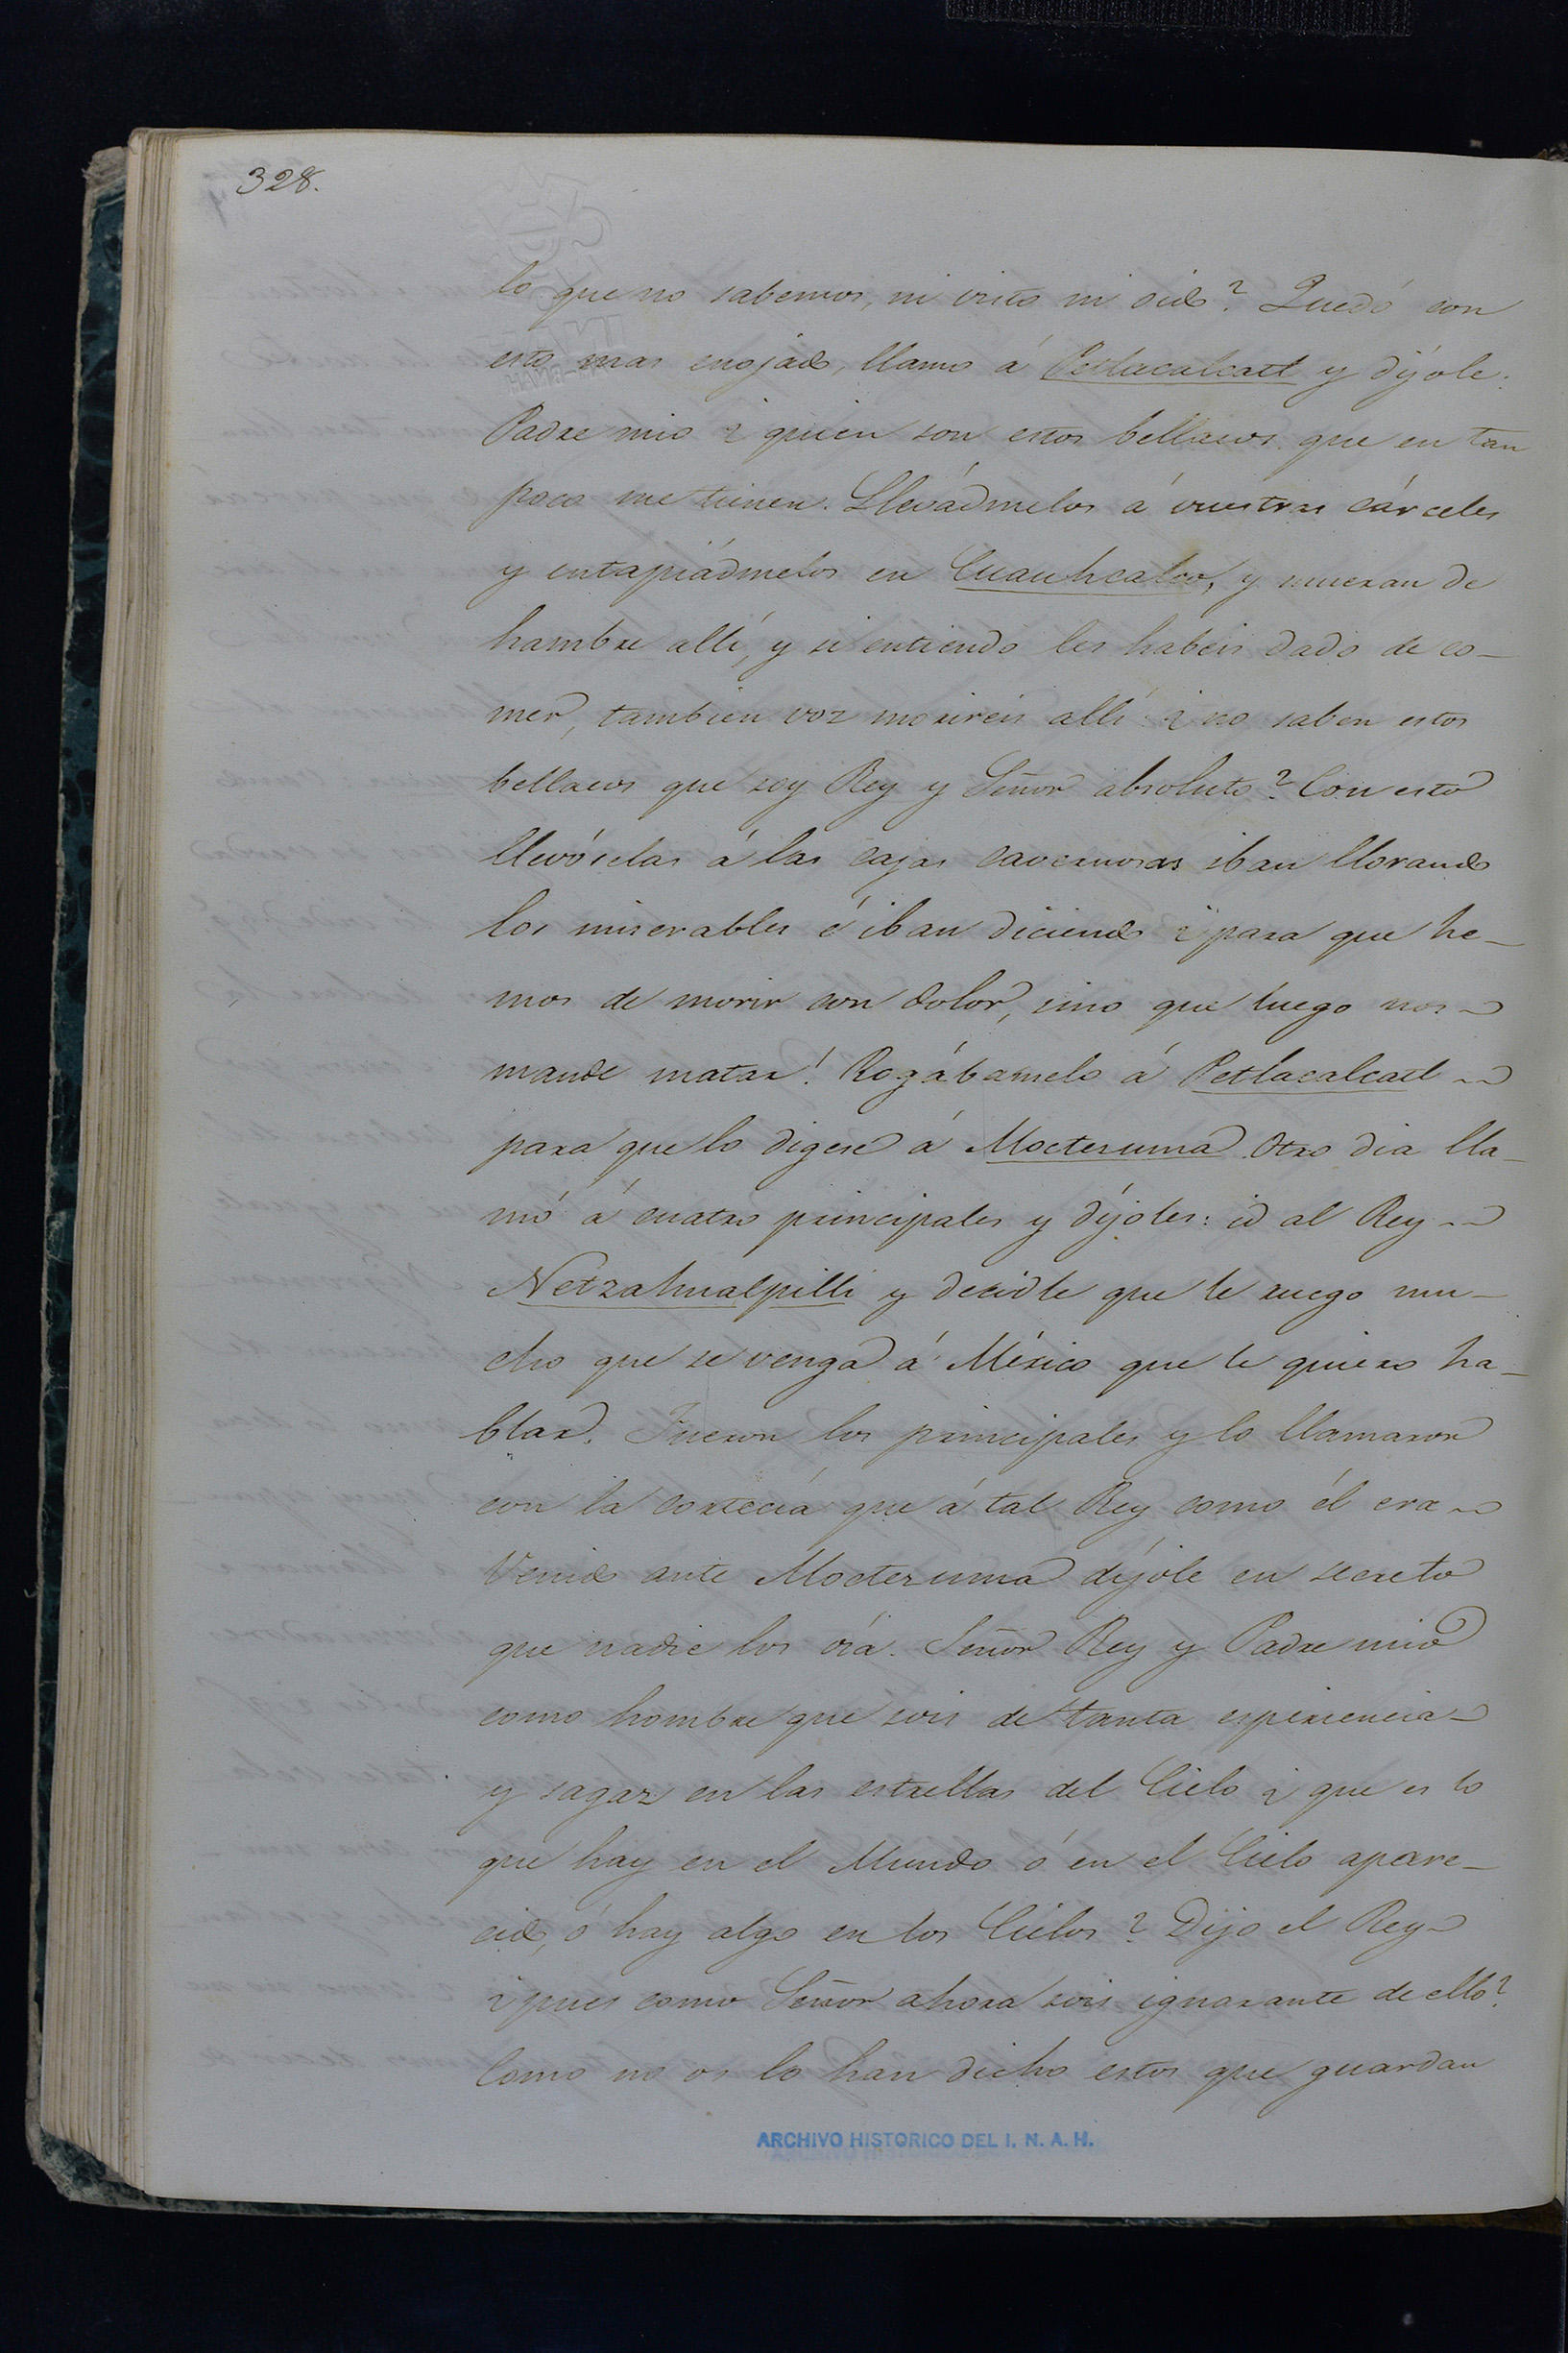 328.
lo que no sabemos, ni visto ni oido? Quedó con
esto mas enojado, llamo á Petlacalcatl y díjole:
Padre mio ¿quien son estos bellacos que en tan
poco me tienen. Llevádmelos á vuestras cárceles
y entapiádmelos en Cuauhcalco, y mueran de
hambre allí, y si entiendo les habeis dado de co-
mer, tambien voz morireis allí ¿no saben estos
bellacos que soy Rey y Señor absoluto? Con esto
llevóselas á las cajas cavernosas iban llorando
los miserables é iban diciendo ¿para que he-
mos de morir con dolor, sino que luego nos
mande matar! Rogábamelo á Petlacalcatl
para que lo digese á Moctezuma. Otro dia lla-
mó á cuatro principales y díjoles: id al Rey
Netzahualpilli y decidle que le ruego mu-
cho que se venga á México que le quiero ha-
blar. Fueron los principales y lo llamaron
con la cortecía que á tal Rey como él era
Venido ante Moctezuma díjole en secreto
que nadie los oía. Señor Rey y Padre mio
como hombre que sois de tanta espiriencia
y sagaz en las estrellas del Cielo ¿que es lo
que hay en el Mundo ó en el Cielo apare-
cido, ó hay algo en los Cielos? Dijo el Rey
¿pues como Señor ahora sois ignorante de ello?
Como no os lo han dicho estos que guardan
ARCHIVO HISTORICO DEL I. N. A. H.